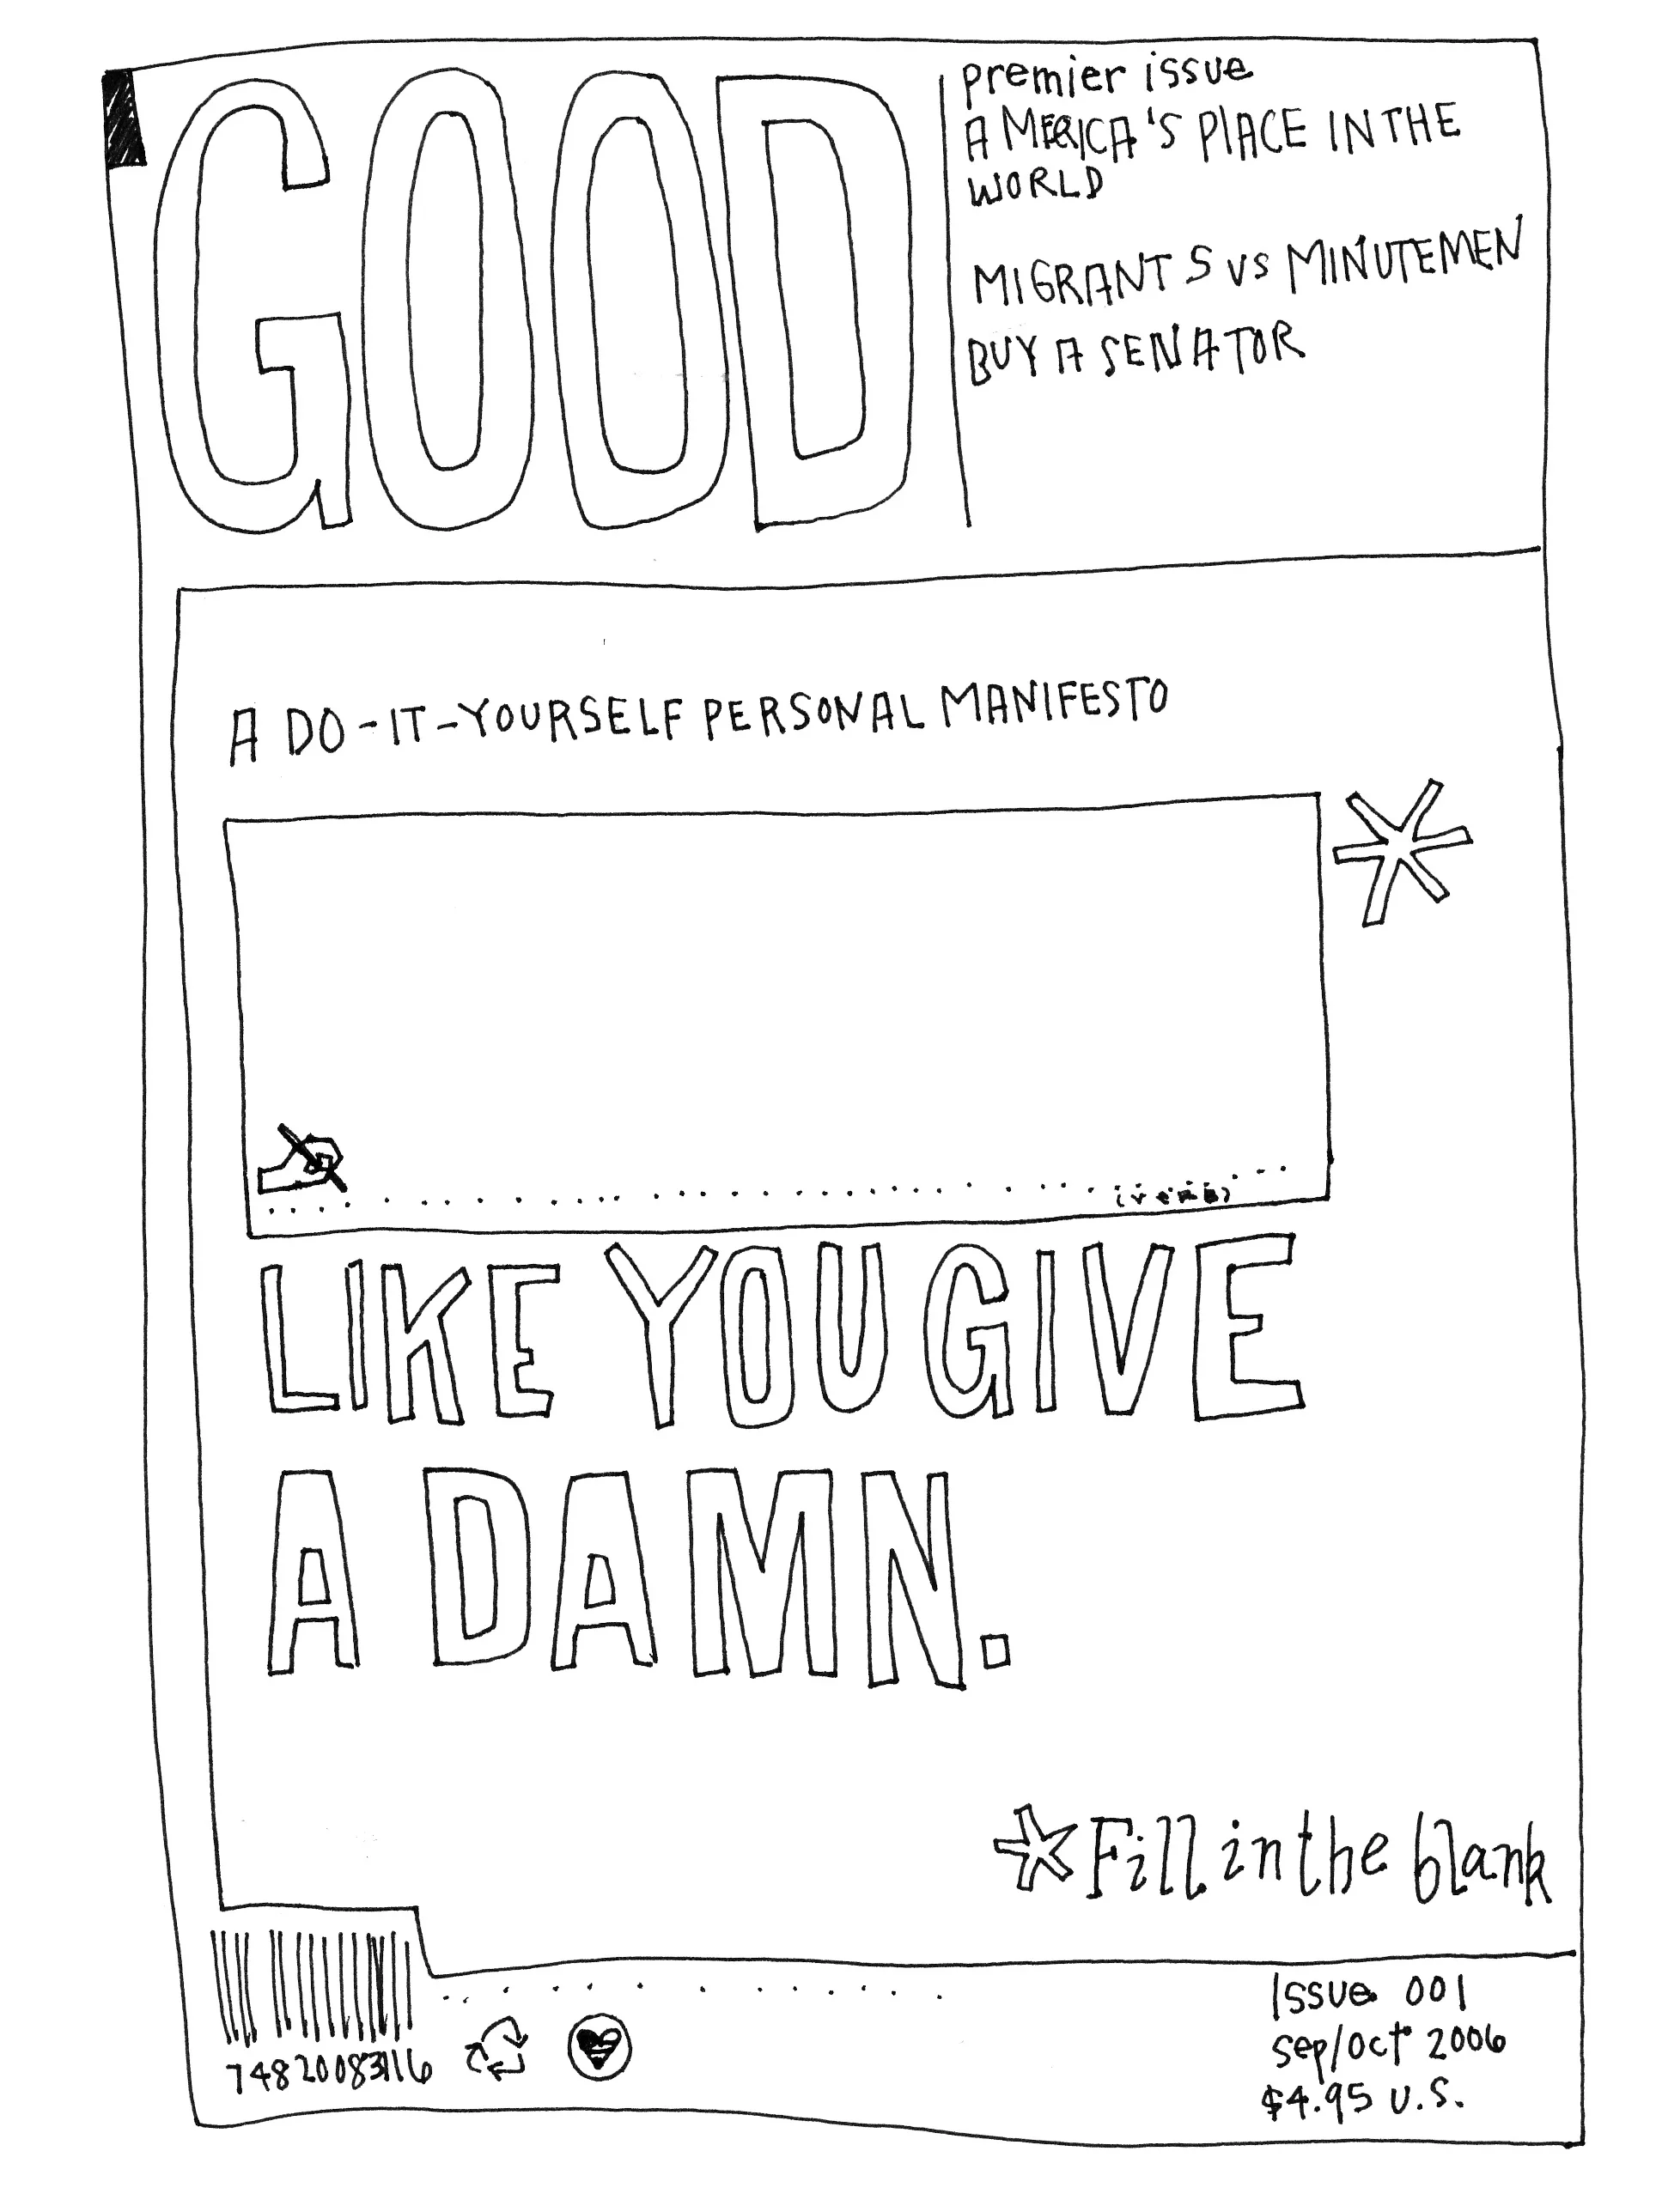 GOOD
premier issue
AMERICA'S PLACE IN THE
WORLD
MIGRANTS VS MINUTEMEN
BUY A SENATOR
A DO-IT-YOURSELF PERSONAL MANIFESTO
(VERB)
LIKE YOU GIVE
A DAMN.
Fill in the blank
74820083116
Issue 001
sep/oct 2006
$4.95 U.S.